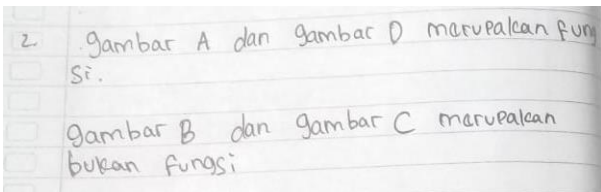 2. gambar A dan gambar D marupakan fung
si.
gambar B dan gambar C marupakan
bukan fungsi